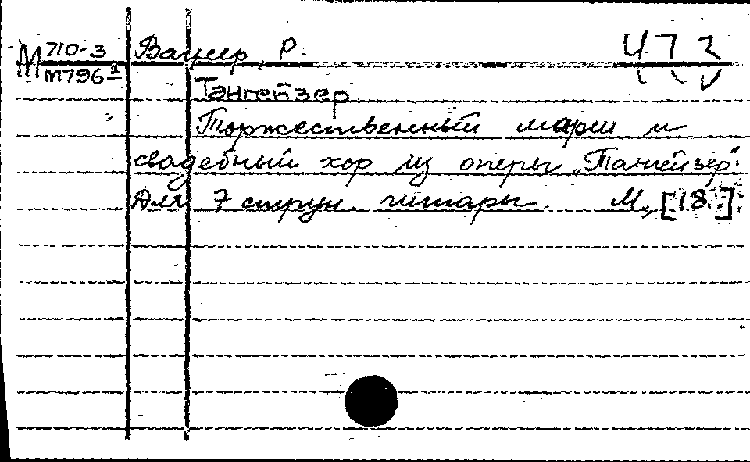 М 710-3 Вагнер, Р. 473
М796²
Тангейзер
Торжественный марш и
свадебный хор из оперы „Тангейзер".
Для 7 струн. гитары. М., [18..].